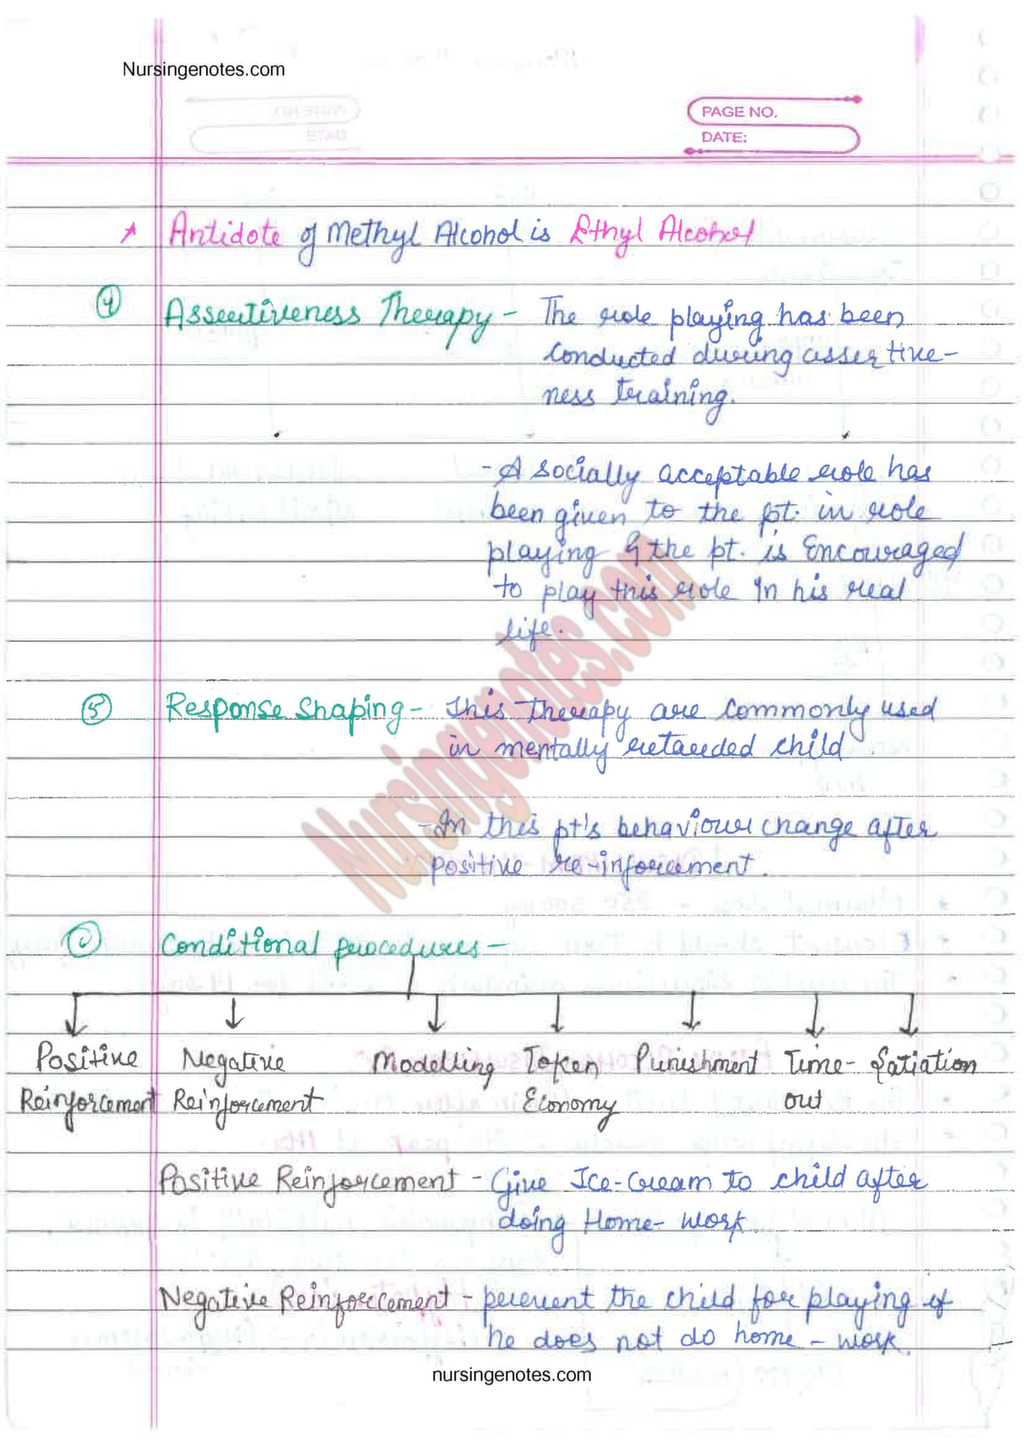 Nursingenotes.com
PAGE NO.
DATE:
Antidote of Methyl Alcohol is Ethyl Alcohol
④ Assertiveness Therapy - The role playing has been
conducted during assertive-
ness training.
- A socially acceptable role has
been given to the pt. in role
playing & the pt. is Encouraged
to play this role In his real
life.
⑤ Response Shaping - This therapy are commonly used
in mentally retarded child.
- In this pt's behaviour change after
positive re-inforcement.
Nursingenotes.com
Conditional procedures -
Positive Negative Modelling Token Punishment Time- Satiation
Reinforcement Reinforcement Economy out
Positive Reinforcement - Give Ice-Cream to child after
doing Home-work.
Negative Reinforcement - prevent the child for playing if
he does not do home-work.
nursingenotes.com